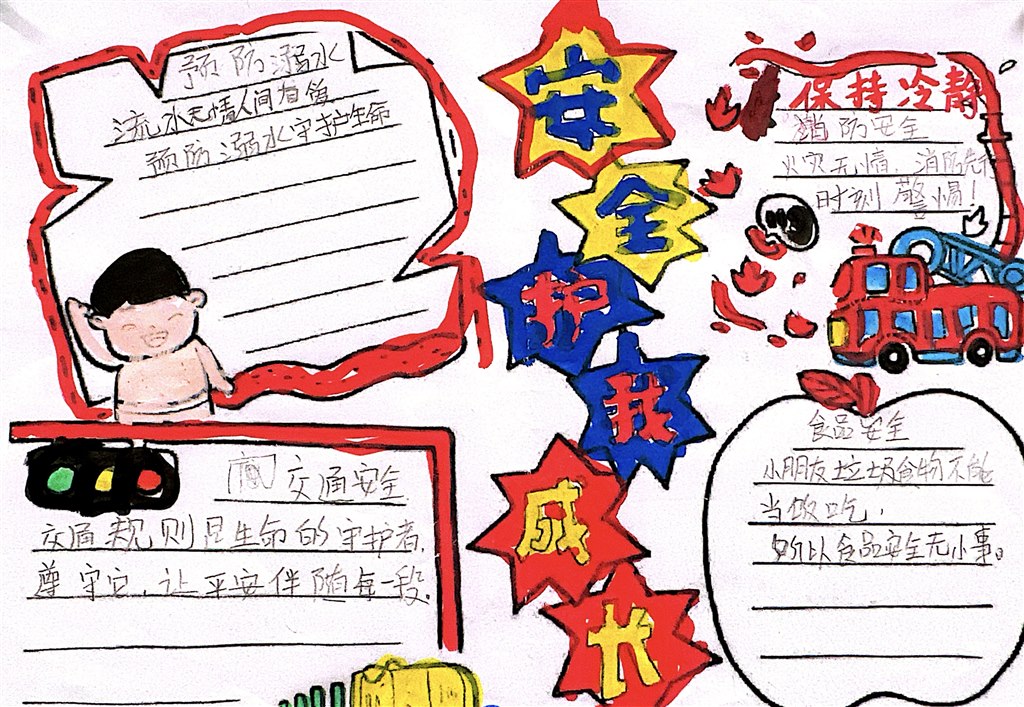 预防溺水
流水无情人间有爱
预防溺水守护生命
安
全
护
我
成
长
保持冷静
消防安全
火灾无情 消防先行
时刻警惕!
交通安全
交通规则是生命的守护者,
尊守它,让平安伴随每一段.
食品安全
小朋友垃圾食物不能
当饭吃,
所以食品安全无小事。